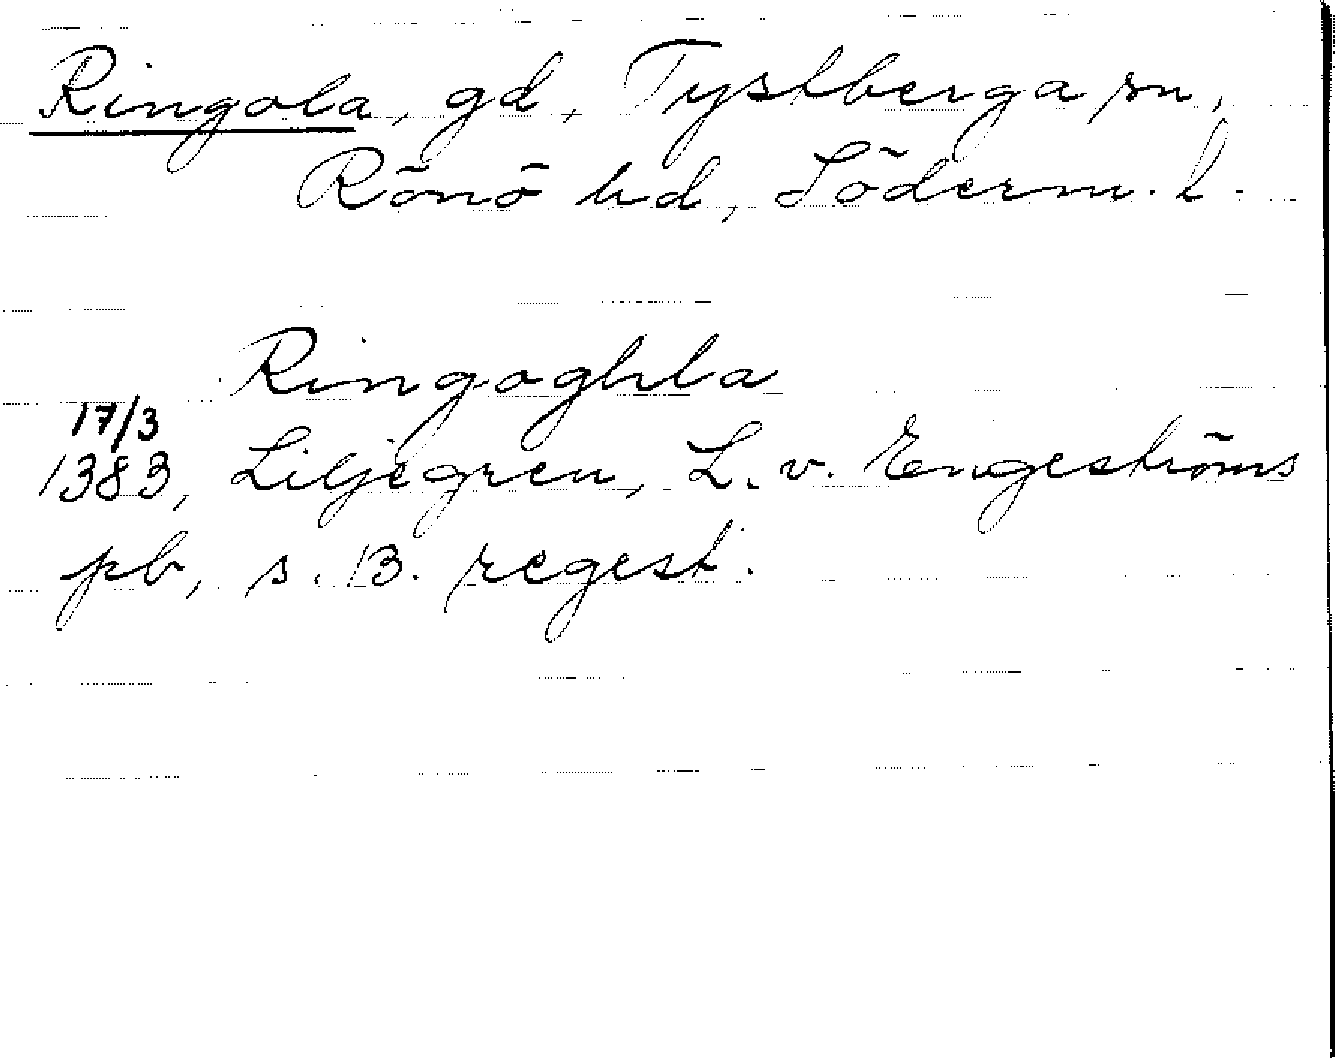 Ringola, gd, Tystberga sn,
Rönö hd, Söderm. l.
Ringoghla
17/3
1383, Liljegren, L. v. Engeströms
pb, s. 13. regest.